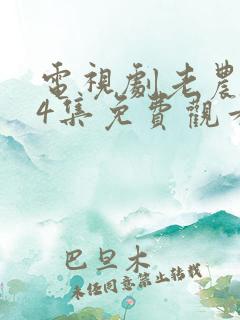 電視劇老農
4集免費觀看
巴旦木
未經同意禁止轉載